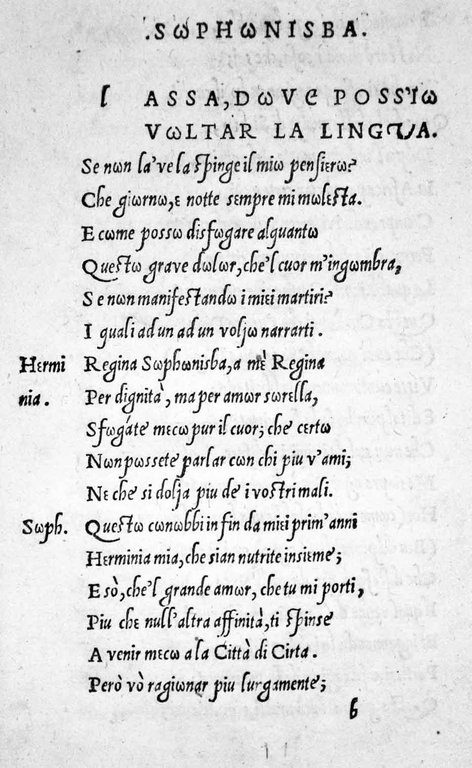 .SωPHωNISBA.
lASSA, DωVE POSS'Iω
VωLTAR LA LINGUA.
Se nωn la've la spinge il miω pensierω?
Che giωrnω, ε notte sempre mi mωlεsta.
E cωme possω disfωgare alquantω
Questω grave dωlωr, che'l cuor m'ingωmbra,
Se nωn manifestandω i miεi martiri?
I quali ad un ad un vωljω narrarti.
Hεrmi Regina Sωphωnisba, a mε Regina
nia. Per dignità, ma per amωr sωrεlla,
Sfωgáte mecω pur il cuor; che cεrtω
Nωn pωssete parlar cωn chi piu v'ami;
Nε che si dolja piu de' i vostri mali.
Sωph. Questω cωnωbbi in fin da miεi prim'anni
Hεrminia mia, che sian nutrite insiεme;
E sò, che'l grande amωr, che tu mi pωrti,
Piu che null'altra affinità, ti spinse
A venir mecω a la Città di Cirta.
Però vò ragiωnar piu lurgamente;
b